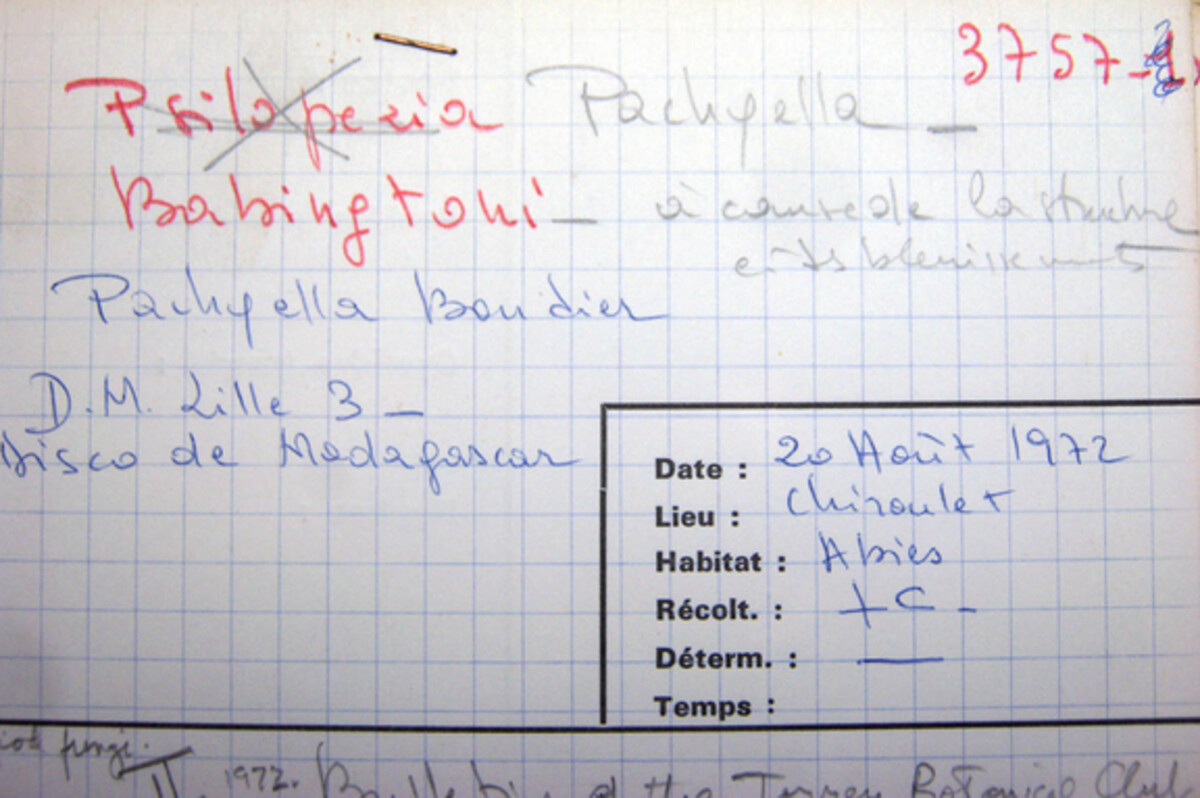 3757-
Psilopezia Pachyella -
Babingtoni - à cause de la structure
et ts bleuissements
Pachyella Boudier
D.M. Lille 3 -
Disco de Madagascar
Date : 20 Août 1972
Lieu : Chiroulet
Habitat : Abies
Récolt. : + C -
Déterm. : —
Temps :
fungi.
1972. Bulletin of the Torrey Botanical Club